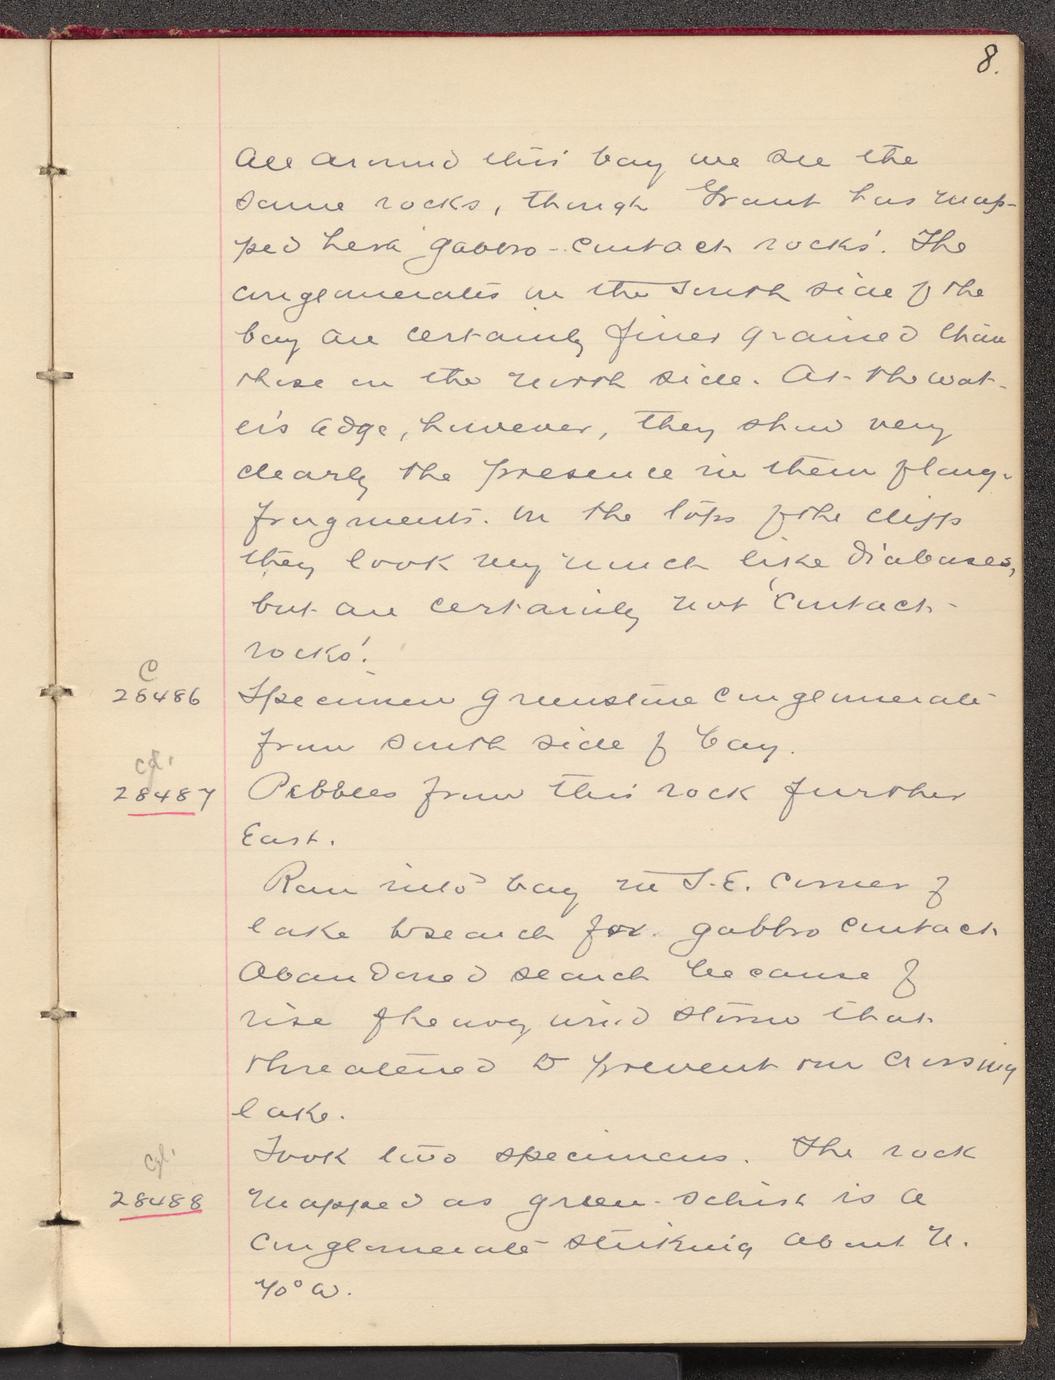 8.
All around this bay we see the
same rocks, though Grant has map-
ped here 'gabbro-contact rocks'. The
conglomerates on the South side of the
bay are certainly finer grained than
those on the north side. At the wat-
er's edge, however, they show very
clearly the presence in them of lavg.
fragments. On the tops of the cliffs
they look very much like diabases,
but are certainly not 'contact-
rocks'.
C
28486 Specimen greenstone conglomerate
from South side of bay.
cgl.
28487 Pebbles from this rock further
East.
Ran into bay in S.E. corner of
lake to search for gabbro contact
Abandoned search because of
rise of heavy wind storm that
threatened to prevent our crossing
lake.
Took two specimens. The rock
cgl.
28488 mapped as green-schist is a
conglomerate striking about N.
70° W.